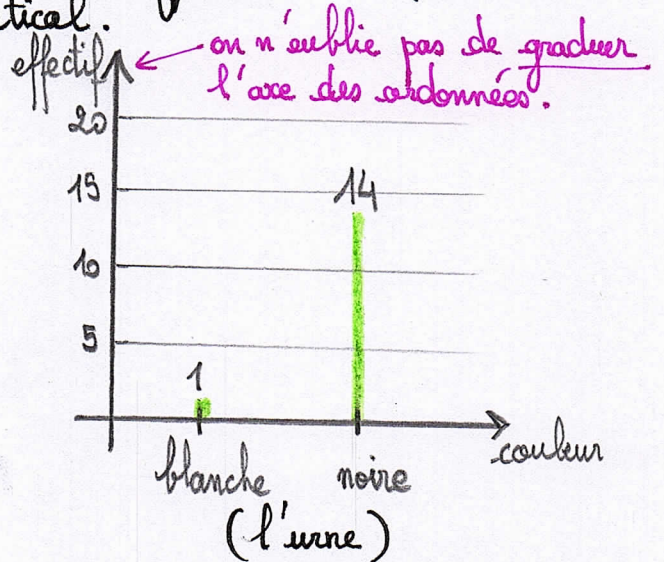 tical.
effectif
on n'oublie pas de graduer
l'axe des ordonnées.
20
15
14
10
5
1
couleur
blanche noire
(l'urne)